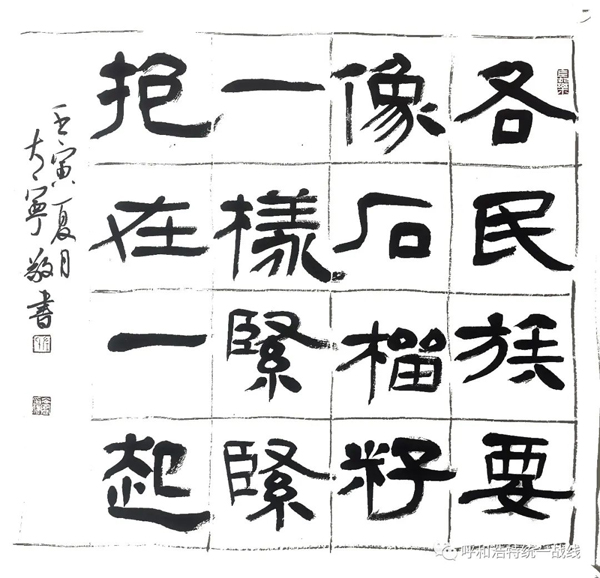 各民族要
像石榴籽
一樣緊緊
抱在一起
壬寅夏月
寧敬書
呼和浩特统一战线